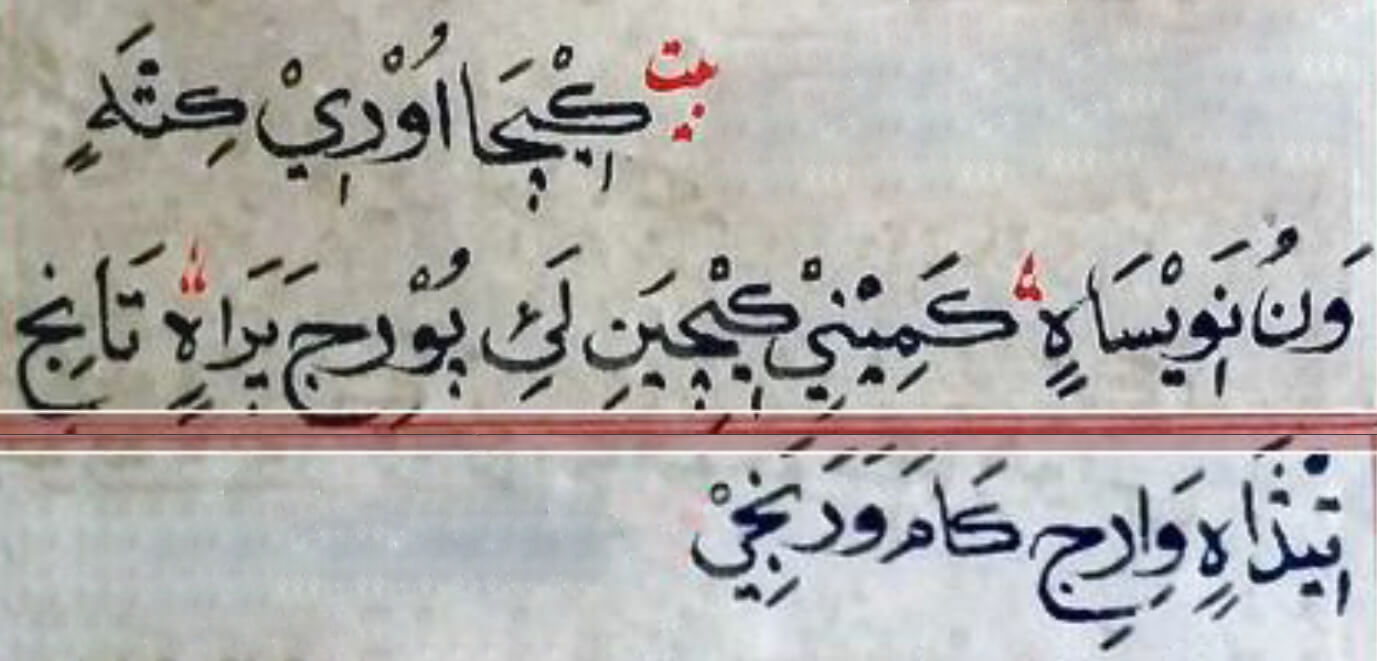 بيت كِيْچَا اُوْرِيْ كِتَهٍ
وَنُ نَوِيْسَاهٍ كَمِيْنِيْ كِيْچِيَنِ لَئِ پُوْرِجَ يَرَاهٍ تَانِجِ
تِيْدَاهٍ وَارِجِ كَامَ وَرَنِجِيْ